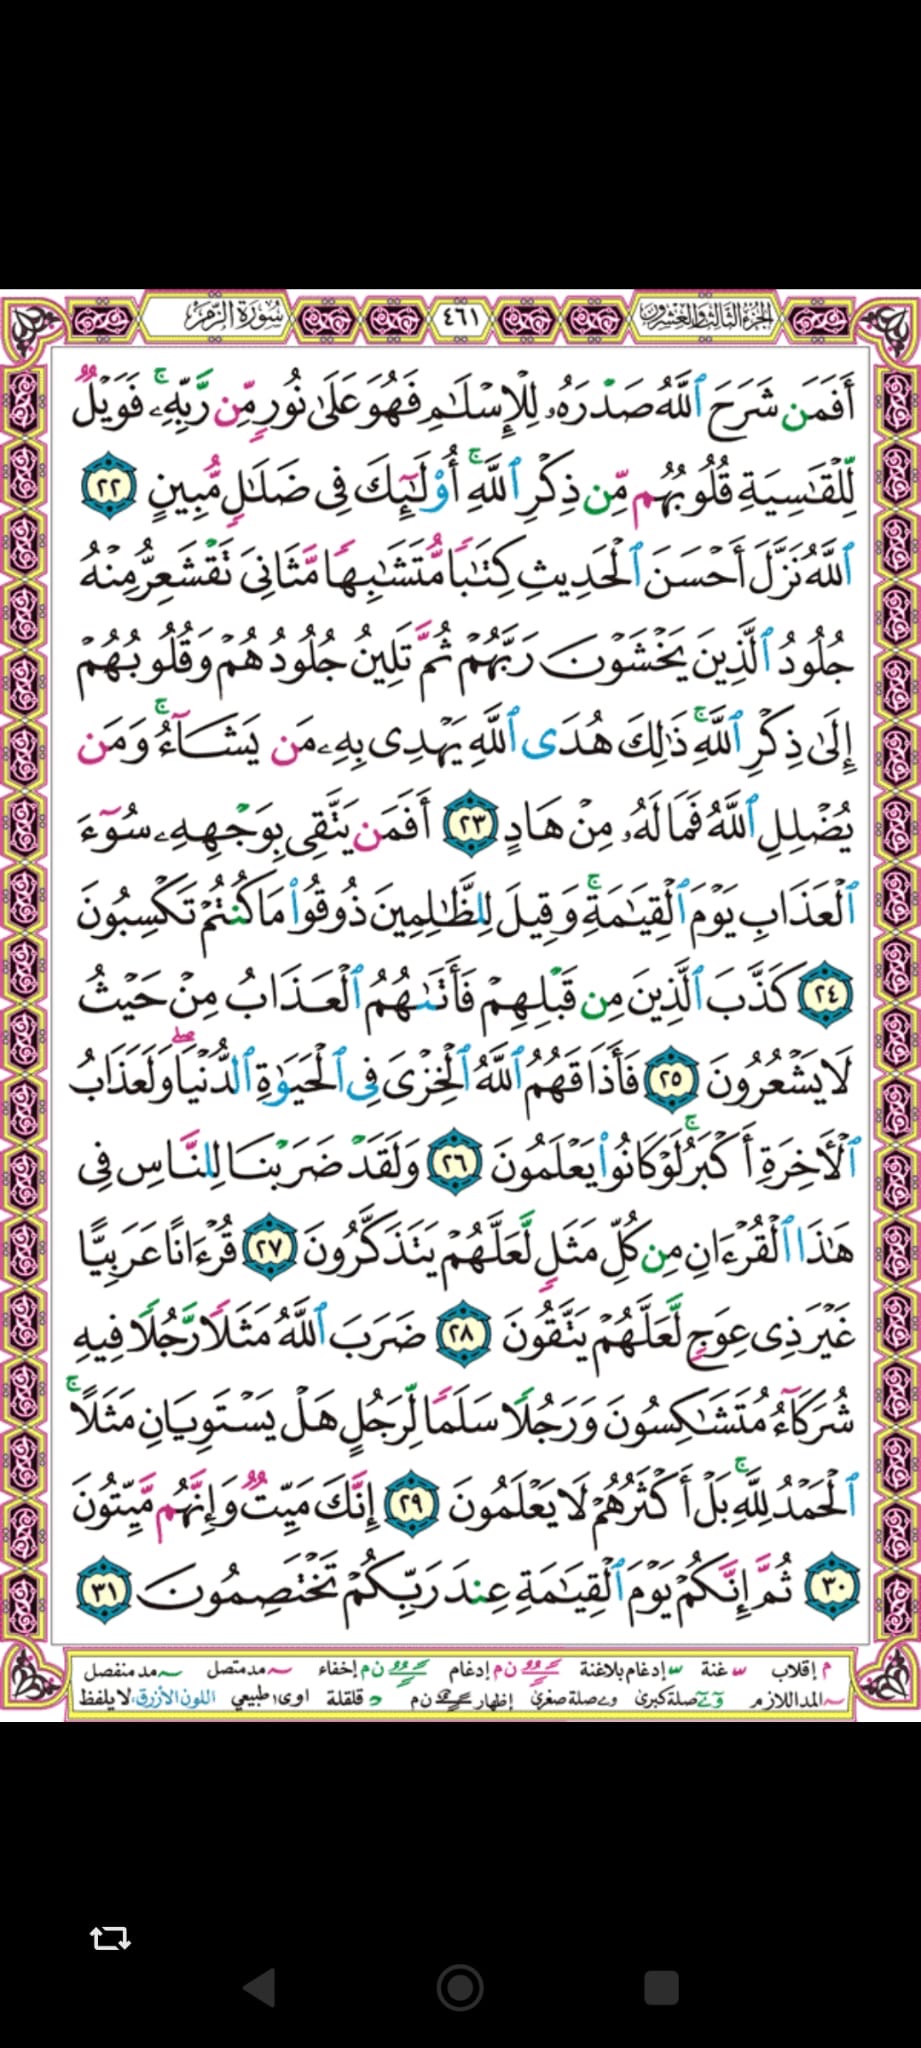 الجزء الثالث والعشرون ٤٦١ سُورَة الزُّمَر
أَفَمَن شَرَحَ ٱللَّهُ صَدْرَهُۥ لِلْإِسْلَٰمِ فَهُوَ عَلَىٰ نُورٍ مِّن رَّبِّهِۦ ۚ فَوَيْلٌ
لِّلْقَٰسِيَةِ قُلُوبُهُم مِّن ذِكْرِ ٱللَّهِ ۚ أُو۟لَٰٓئِكَ فِى ضَلَٰلٍ مُّبِينٍ ٢٢
ٱللَّهُ نَزَّلَ أَحْسَنَ ٱلْحَدِيثِ كِتَٰبًا مُّتَشَٰبِهًا مَّثَانِىَ تَقْشَعِرُّ مِنْهُ
جُلُودُ ٱلَّذِينَ يَخْشَوْنَ رَبَّهُمْ ثُمَّ تَلِينُ جُلُودُهُمْ وَقُلُوبُهُمْ
إِلَىٰ ذِكْرِ ٱللَّهِ ۚ ذَٰلِكَ هُدَى ٱللَّهِ يَهْدِى بِهِۦ مَن يَشَآءُ ۚ وَمَن
يُضْلِلِ ٱللَّهُ فَمَا لَهُۥ مِنْ هَادٍ ٢٣ أَفَمَن يَتَّقِى بِوَجْهِهِۦ سُوٓءَ
ٱلْعَذَابِ يَوْمَ ٱلْقِيَٰمَةِ ۚ وَقِيلَ لِلظَّٰلِمِينَ ذُوقُوا۟ مَا كُنتُمْ تَكْسِبُونَ
٢٤ كَذَّبَ ٱلَّذِينَ مِن قَبْلِهِمْ فَأَتَىٰهُمُ ٱلْعَذَابُ مِنْ حَيْثُ
لَا يَشْعُرُونَ ٢٥ فَأَذَاقَهُمُ ٱللَّهُ ٱلْخِزْىَ فِى ٱلْحَيَوٰةِ ٱلدُّنْيَا ۖ وَلَعَذَابُ
ٱلْـَٔاخِرَةِ أَكْبَرُ ۚ لَوْ كَانُوا۟ يَعْلَمُونَ ٢٦ وَلَقَدْ ضَرَبْنَا لِلنَّاسِ فِى
هَٰذَا ٱلْقُرْءَانِ مِن كُلِّ مَثَلٍ لَّعَلَّهُمْ يَتَذَكَّرُونَ ٢٧ قُرْءَانًا عَرَبِيًّا
غَيْرَ ذِى عِوَجٍ لَّعَلَّهُمْ يَتَّقُونَ ٢٨ ضَرَبَ ٱللَّهُ مَثَلًا رَّجُلًا فِيهِ
شُرَكَآءُ مُتَشَٰكِسُونَ وَرَجُلًا سَلَمًا لِّرَجُلٍ هَلْ يَسْتَوِيَانِ مَثَلًا ۚ
ٱلْحَمْدُ لِلَّهِ ۚ بَلْ أَكْثَرُهُمْ لَا يَعْلَمُونَ ٢٩ إِنَّكَ مَيِّتٌ وَإِنَّهُم مَّيِّتُونَ
٣٠ ثُمَّ إِنَّكُمْ يَوْمَ ٱلْقِيَٰمَةِ عِندَ رَبِّكُمْ تَخْتَصِمُونَ ٣١
م إقلاب غنة إدغام بلاغنة ن م إدغام ن م إخفاء مد متصل مد منفصل
المد اللازم صلة كبرى صلة صغرى إظهار ن م قلقلة اوى طبيعي اللون الأزرق، لا يلفظ